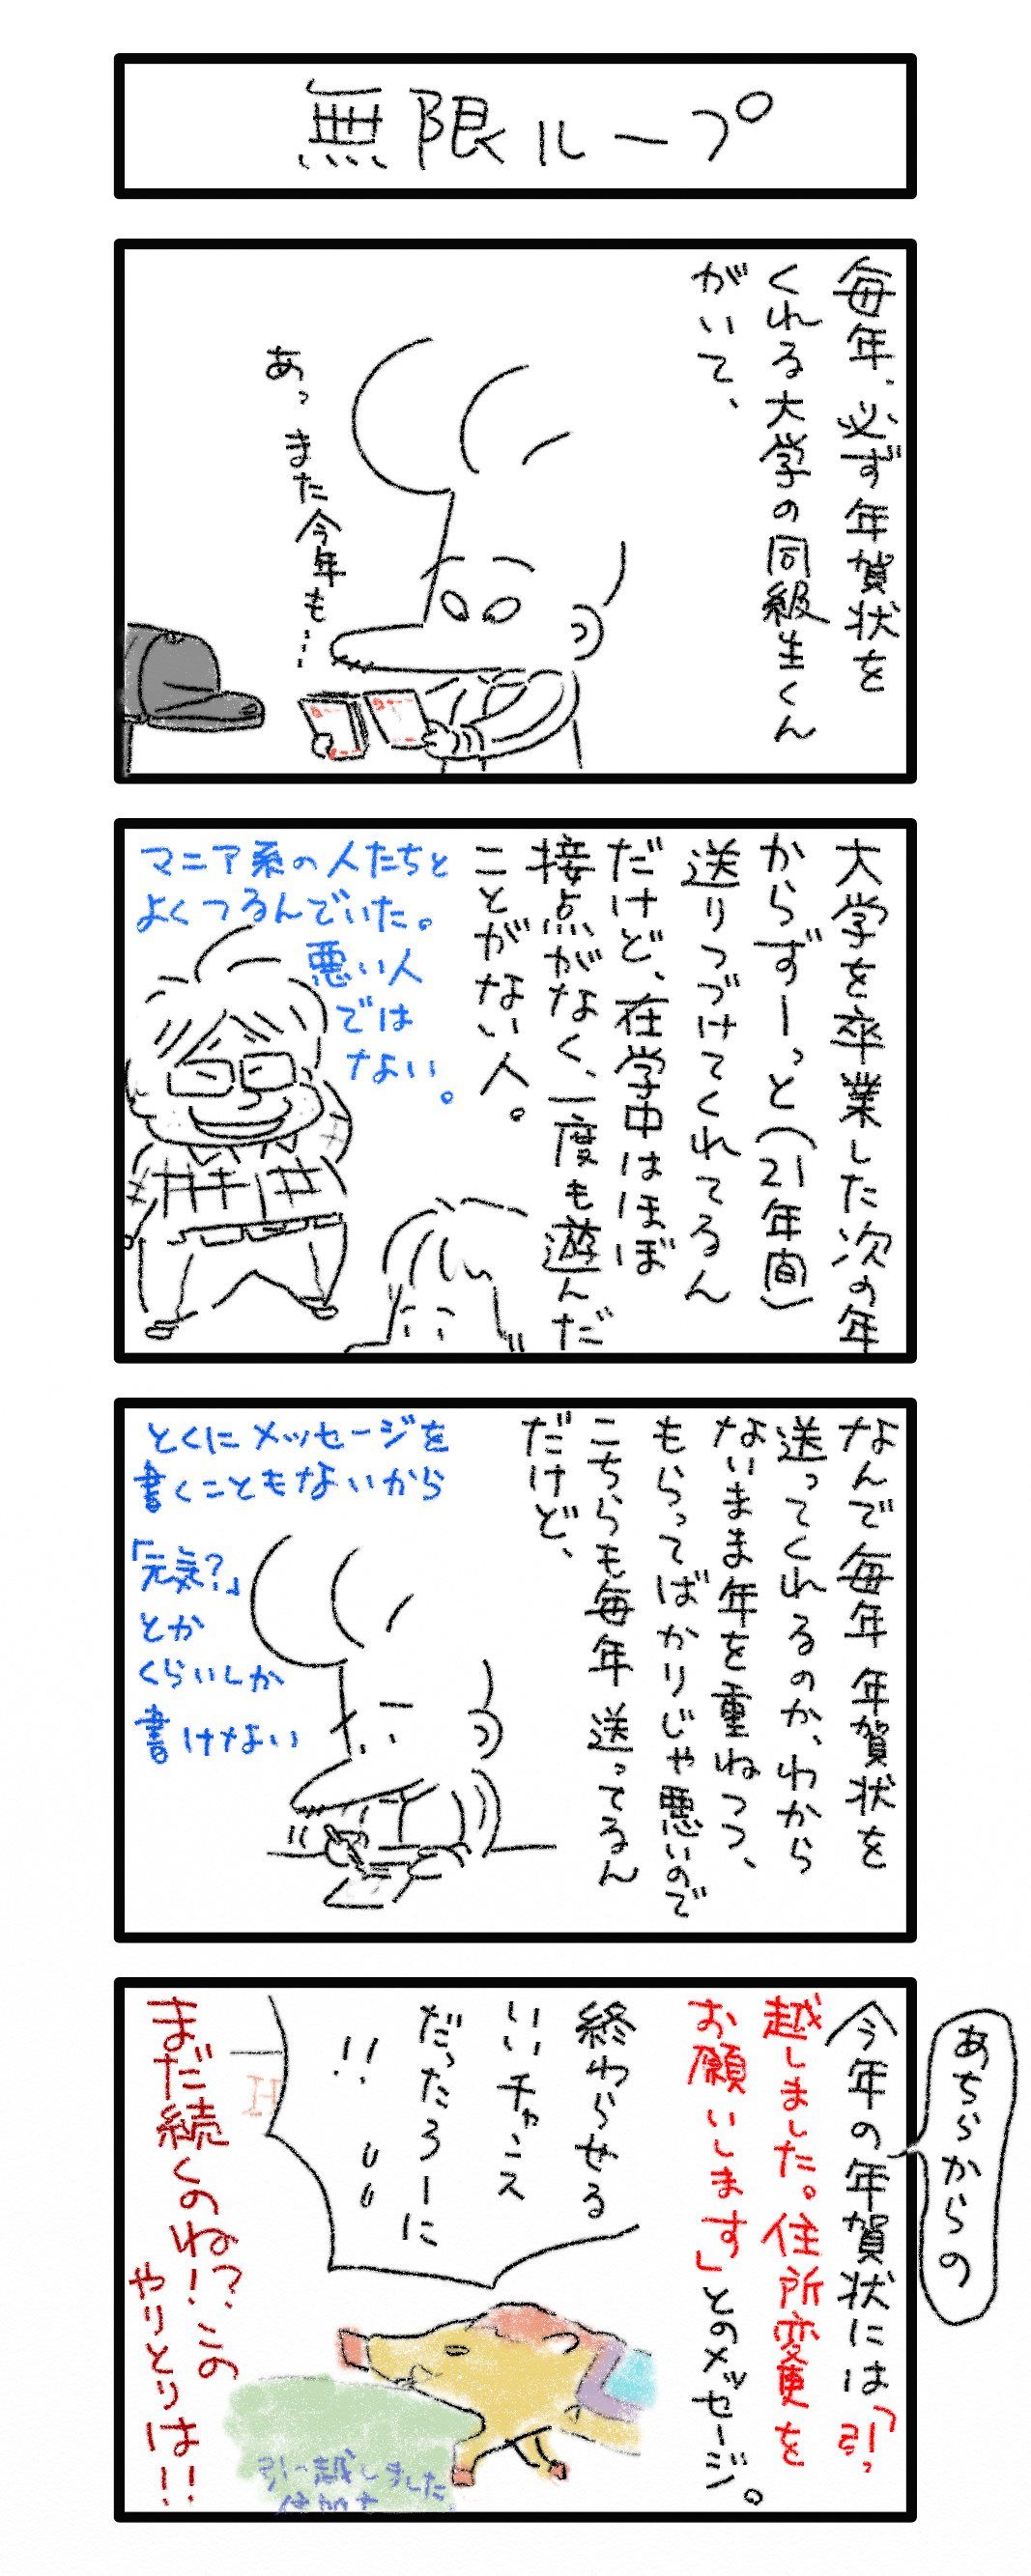 無限ループ
毎年、必ず年賀状を
くれる大学の同級生くん
がいて、
あっ
また今年も…
大学を卒業した次の年
からずーっと（21年間）
送りつづけてくれてるん
だけど、在学中はほぼ
接点がなく、一度も遊んだ
ことがない人。
マニア系の人たちと
よくつるんでいた。
悪い人
では
ない。
なんで毎年年賀状を
送ってくれるのか、わから
ないまま年を重ねつつ、
もらってばかりじゃ悪いので
こちらも毎年送ってるん
だけど、
とくにメッセージを
書くこともないから
「元気？」
とか
くらいしか
書けない
あちらからの
今年の年賀状には「引っ
越しました。住所変更を
お願いします」とのメッセージ。
終わらせる
いいチャンス
だったろーに
!!
引っ越しました
まだ続くのね？！この
やりとりは！！